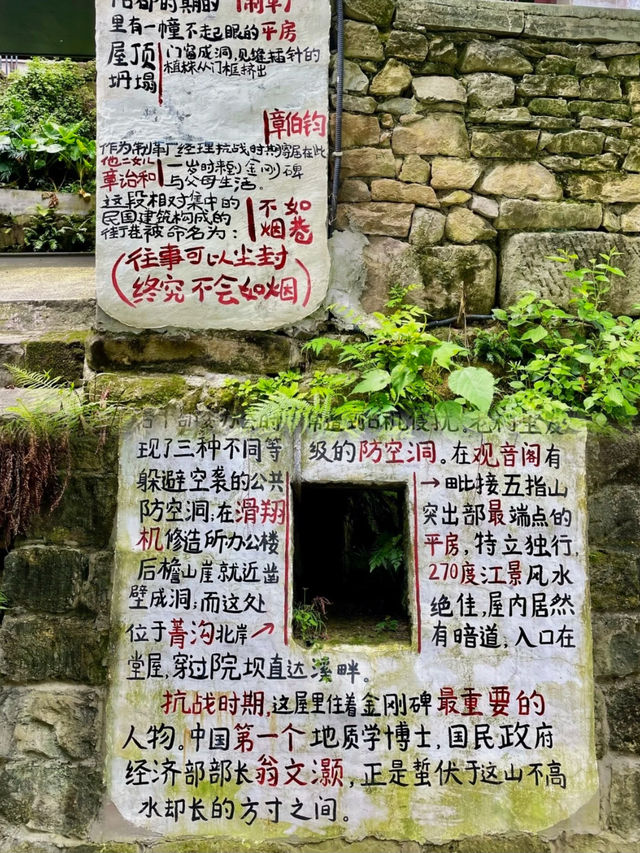 沦部时期的"制革厂"
里有一幢不起眼的平房
屋顶坍塌
门窗成洞,见缝插针的
植株从门框挤出
章伯钧
作为制革厂经理抗战时期寄居在此
他二女儿章诒和
一岁时来到金刚碑
与父母生活。
这段相对集中的
民国建筑构成的
街巷被命名为:
不如烟巷
(往事可以尘封
终究不会如烟)
现了三种不同等级的防空洞。在观音阁有
躲避空袭的公共
防空洞;在滑翔
机修造所办公楼
后檐山崖就近凿
壁成洞;而这处
位于菁沟北岸
→毗接五指山
突出部最端点的
平房,特立独行,
270度江景风水
绝佳,屋内居然
有暗道,入口在
堂屋,穿过院坝直达溪畔。
抗战时期,这屋里住着金刚碑最重要的
人物。中国第一个地质学博士,国民政府
经济部部长翁文灏,正是蜇伏于这山不高
水却长的方寸之间。